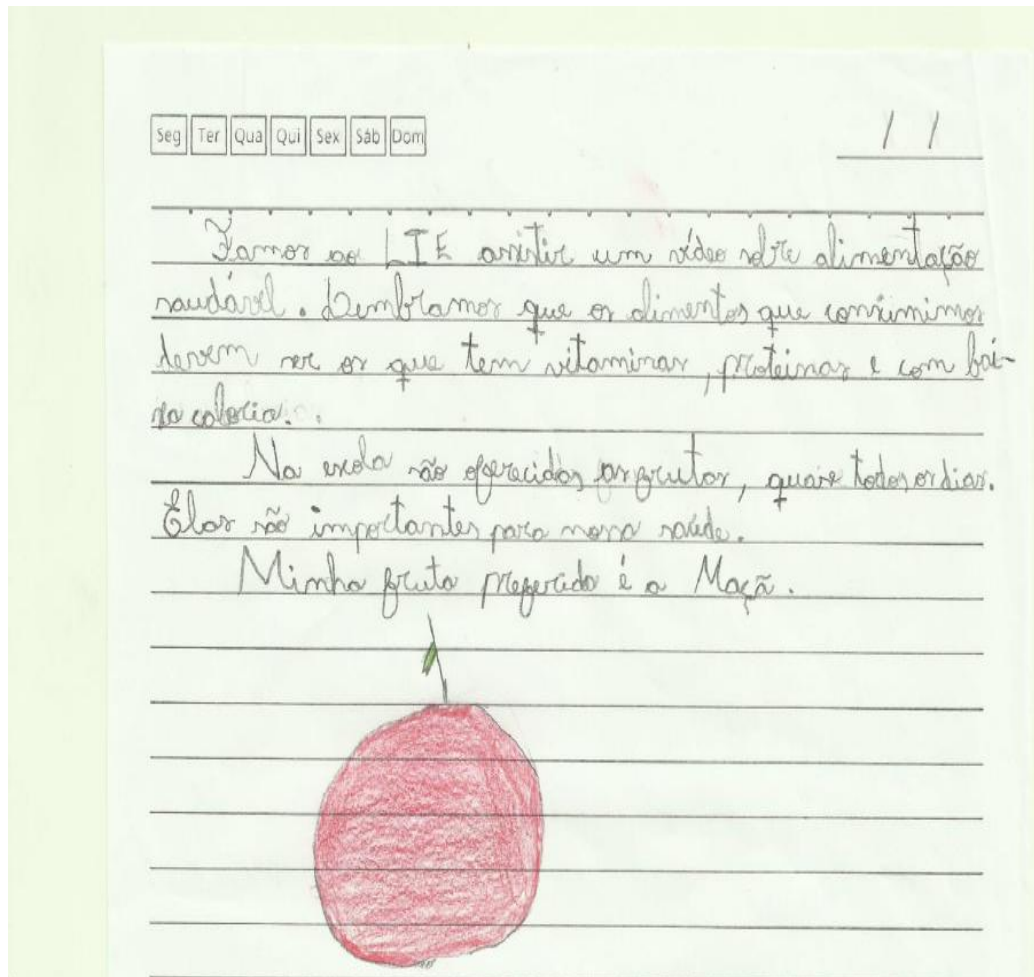 Seg Ter Qua Qui Sex Sáb Dom
/ /
Fomos ao LIE assistir um vídeo sobre alimentação
saudável. Lembramos que os alimentos que consumimos
devem ser os que tem vitaminas, proteinas e com bai-
xa caloria.
Na escola são oferecidos as frutas, quase todos os dias.
Elas são importantes para nossa saúde.
Minha fruta preferida é a Maçã.